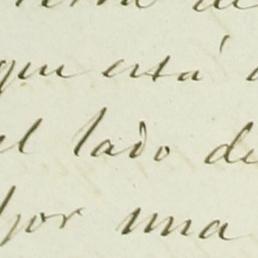 que está
el lado de
por una